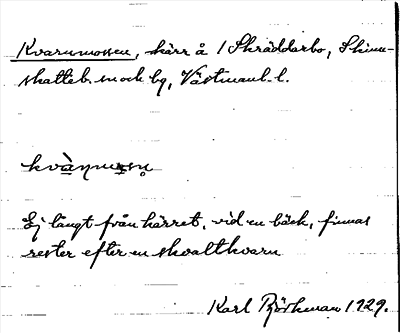 Kvarnmossen, kärr å 1 Skräddarbo, Skinn-
skatteb. sn och bg, Västmanl. l.
kvànmosn̥
Ej långt från kärret, vid en bäck, finnas
rester efter en skvaltkvarn
Karl Björkman 1929.